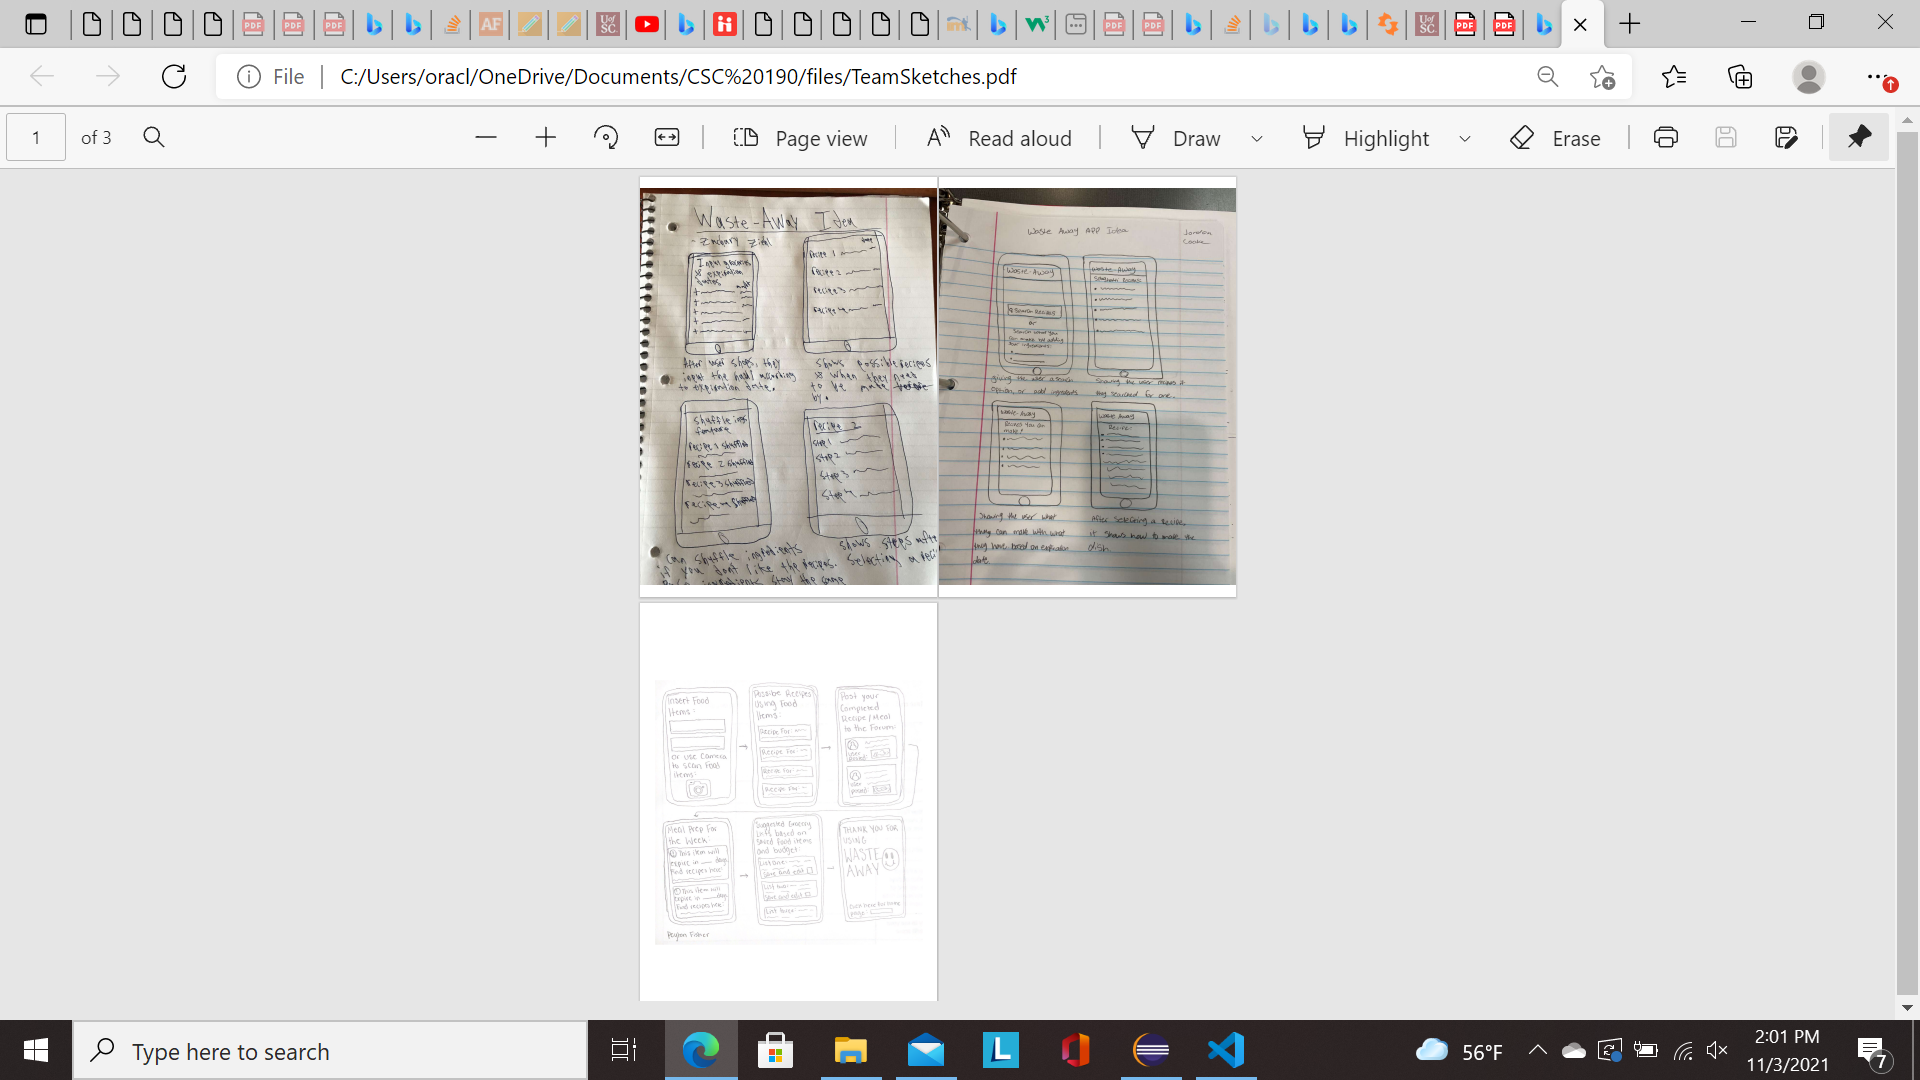 File
C:/Users/oracl/OneDrive/Documents/CSC%20190/files/TeamSketches.pdf
1
of 3
Page view
Read aloud
Draw
Highlight
Erase
Waste-Away Idea
- Zachary
Input groceries
& expiration
dates
Recipe 1
Recipe 2
Recipe 3
Recipe 4
After user shops, they
input the haul according
to expiration date.
Shows possible recipes
& when they need
to be made
by.
Shuffle ings
feature
Recipe 1 shuffled
Recipe 2 shuffled
Recipe 3 shuffled
Recipe 4 shuffled
Recipe 2
Step 1
Step 2
Step 3
Step 4
can shuffle ingredients
if you dont like the recipes.
ingredients stay the same
shows steps after
selecting a reci
Waste Away App Idea
Waste-Away
Search Recipes
or
Waste-Away
giving the user a search
option, or add ingredients
Showing the user recipes if
they searched for one.
Waste-Away
Recipes You can
make:
Waste Away
Recipe:
Showing the user what
they can make with what
they have based on expiration
date
After selecting a recipe,
it shows how to make the
dish
Insert Food
Items:
or use camera
to scan food
items:
Possible Recipes
Using Food
Items:
Recipe For:
Recipe For:
Recipe For:
Recipe For:
Post your
Completed
Recipe/Meal
to the Forum:
User
posted:
User
posted:
Meal Prep For
the Week:
This item will
expire in ___ days
Find recipes here:
This item will
expire in ___ days
Find recipes here:
Suggested Grocery
Lists based on
saved food items
and budget:
List One:
Save and edit
List two:
Save and edit
List three:
THANK YOU FOR
USING
WASTE
AWAY
click here for home
page:
Peyton Fisher
Type here to search
56°F
2:01 PM
11/3/2021
7